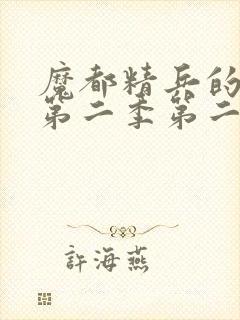 魔都精兵的
第二季第二
許海燕